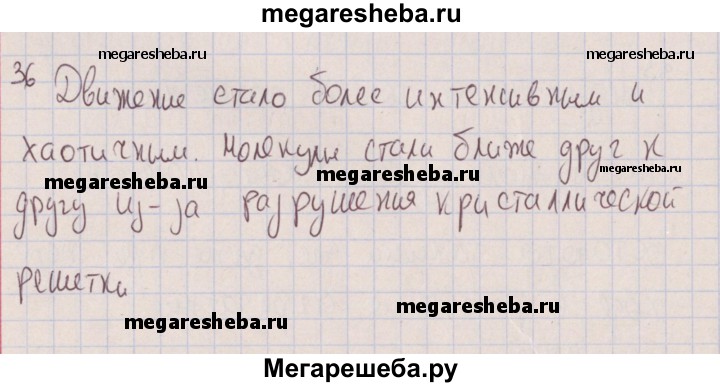 megaresheba.ru
megaresheba.ru megaresheba.ru
36 Движение стало более интенсивным и
хаотичным. Молекулы стали ближе друг к
megaresheba.ru megaresheba.ru
другу из-за разрушения кристаллической
решетки
megaresheba.ru
megaresheba.ru
Мегарешеба.ру